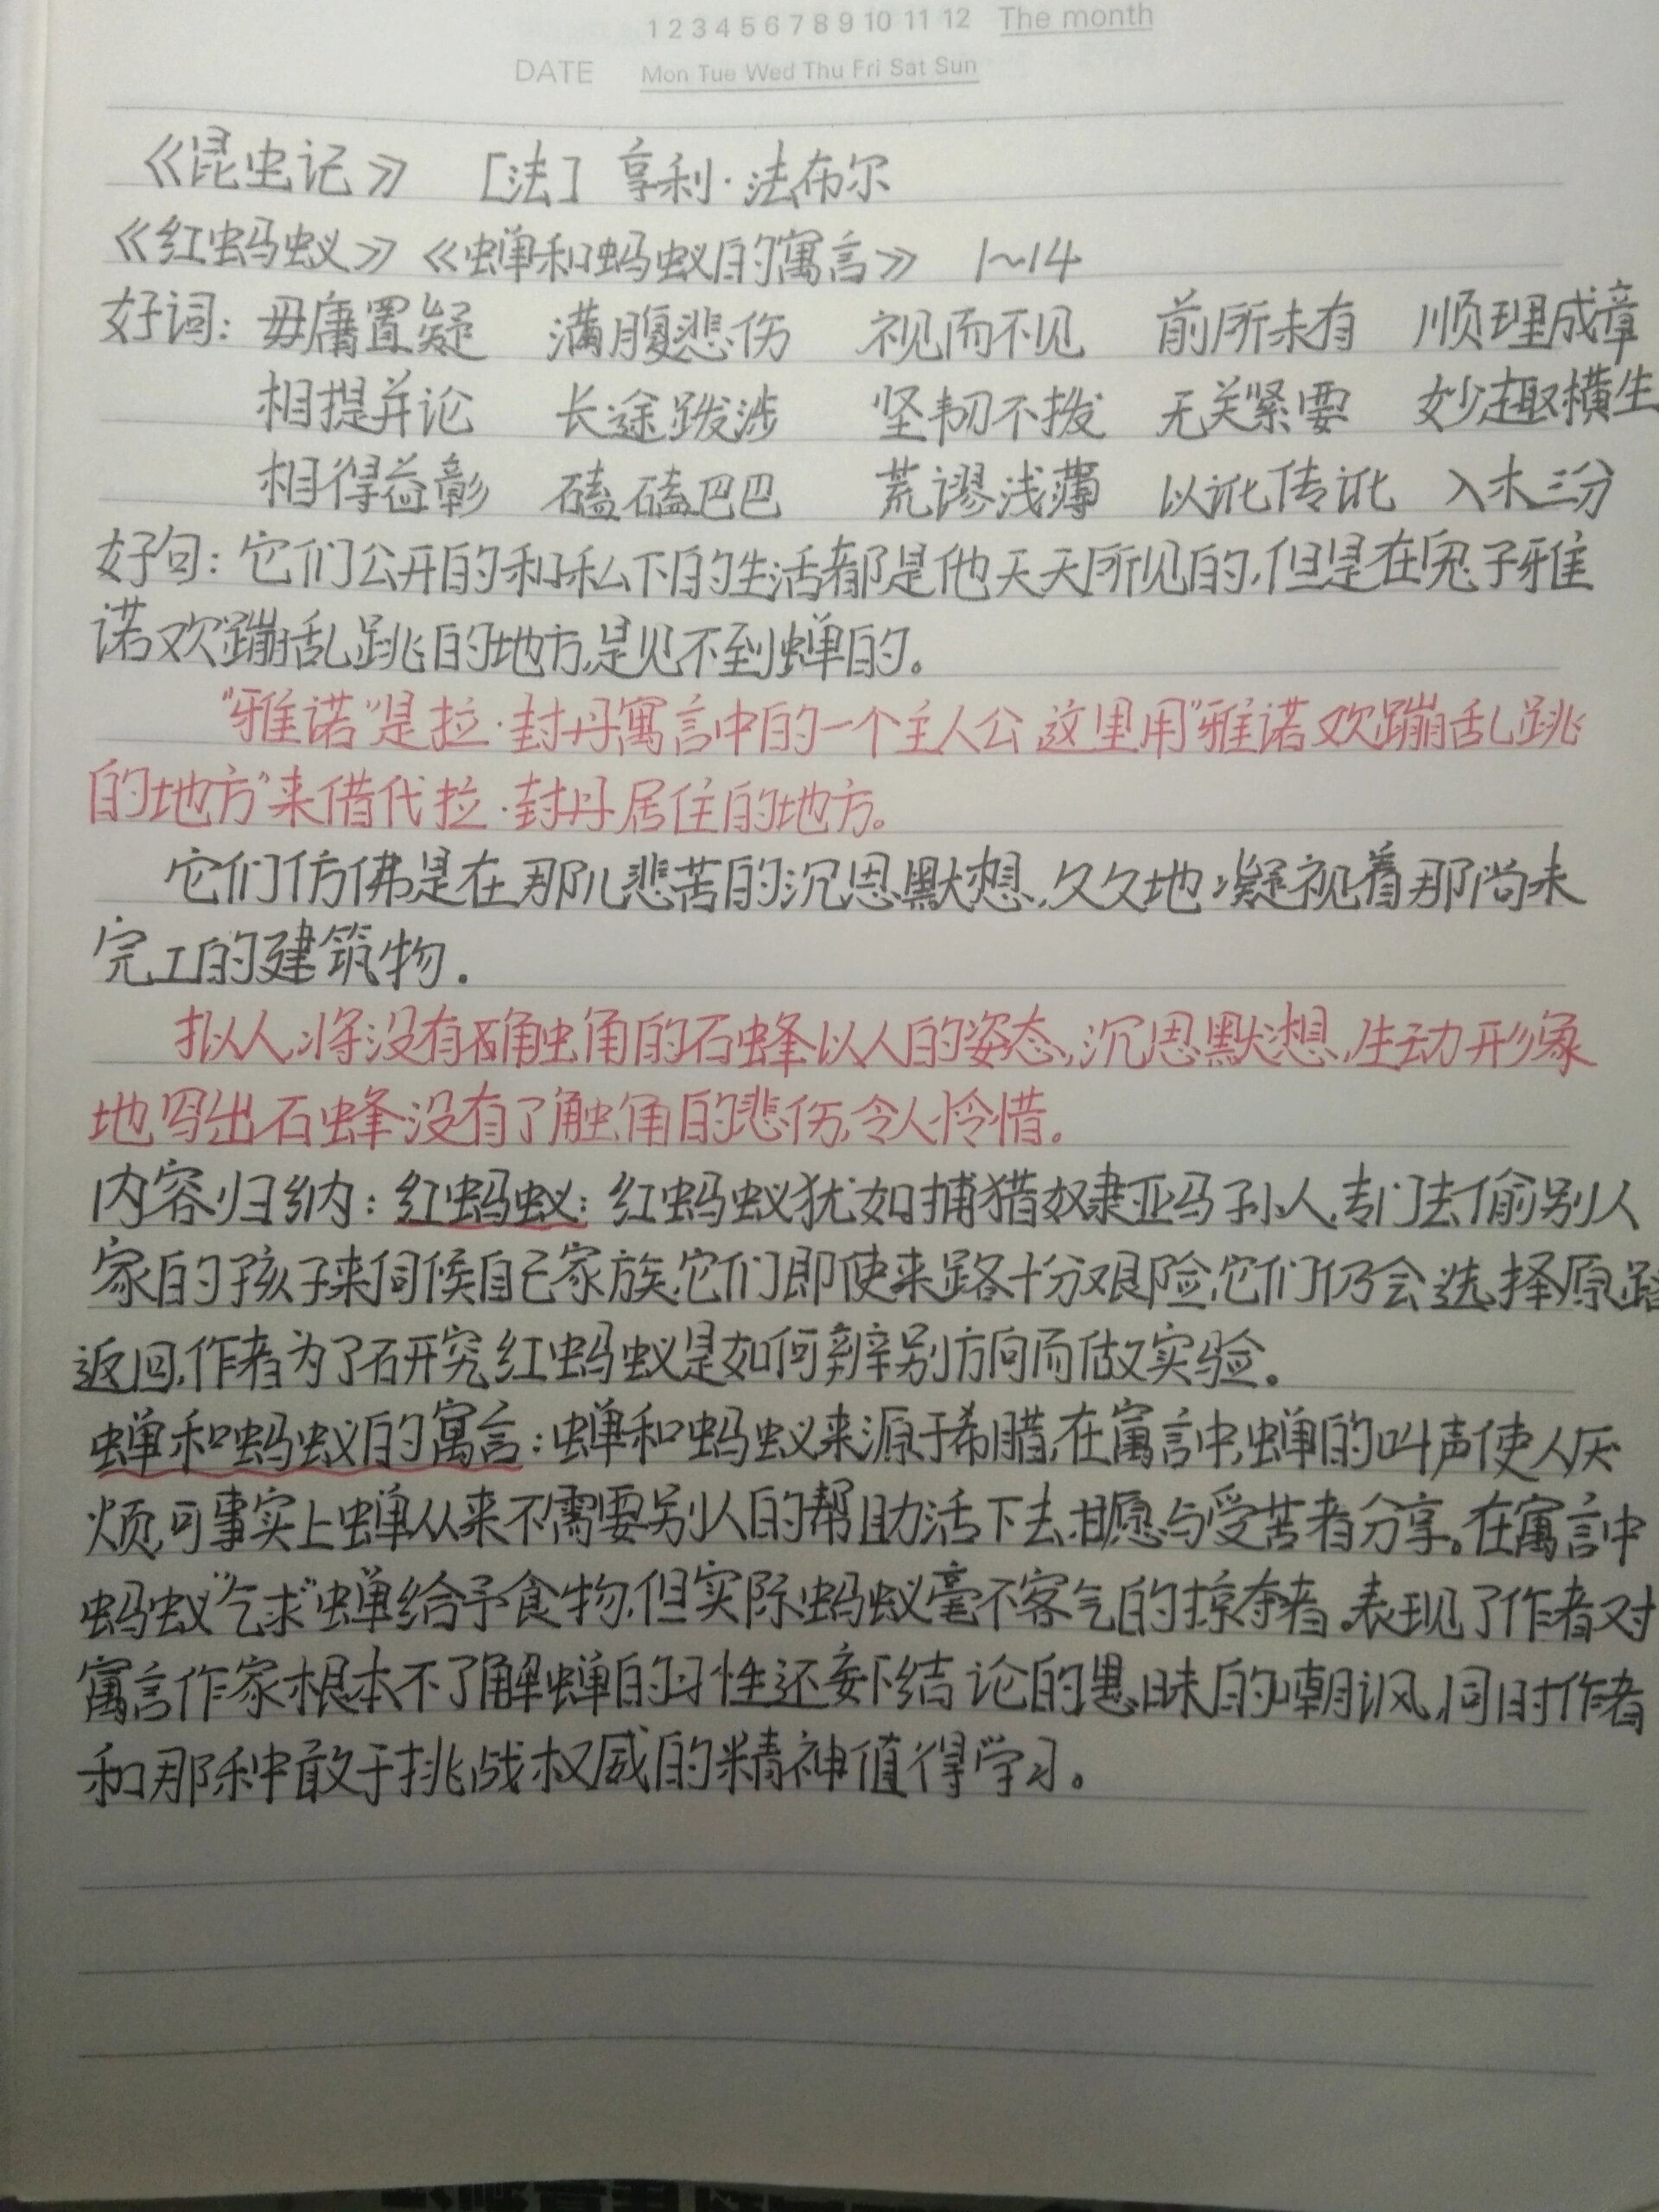 1 2 3 4 5 6 7 8 9 10 11 12 The month
DATE Mon Tue Wed Thu Fri Sat Sun
《昆虫记》 [法] 亨利·法布尔
《红蚂蚁》《蝉和蚂蚁的寓言》 1~14
好词：毋庸置疑 满腹悲伤 视而不见 前所未有 顺理成章
相提并论 长途跋涉 坚韧不拨 无关紧要 妙趣横生
相得益彰 磕磕巴巴 荒谬浅薄 以讹传讹 入木三分
好句：它们公开的和私下的生活都是他天天所见的,但是在兔子雅
诺欢蹦乱跳的地方,是见不到蝉的。
"雅诺"是拉·封丹寓言中的一个主人公 这里用"雅诺欢蹦乱跳
的地方"来借代拉·封丹居住的地方。
它们仿佛是在那儿悲苦的沉思默想,久久地凝视着那尚未
完工的建筑物.
拟人,将没有触角的石蜂以人的姿态,沉思默想,生动形象
地写出石蜂没有了触角的悲伤,令人怜惜。
内容归纳：红蚂蚁：红蚂蚁犹如捕猎奴隶亚马孙人,专门去偷别人
家的孩子来伺候自己家族,它们即使来路十分艰险,它们仍会选择原路
返回,作者为了研究红蚂蚁是如何辨别方向而做实验。
蝉和蚂蚁的寓言：蝉和蚂蚁来源于希腊,在寓言中,蝉的叫声使人厌
烦,可事实上蝉从来不需要别人的帮助活下去,甘愿与受苦者分享。在寓言中
蚂蚁"乞求"蝉给予食物,但实际蚂蚁毫不客气的掠夺者。表现了作者对
寓言作家根本不了解蝉的习性还妄下结论的愚昧的嘲讽,同时作者
和那种敢于挑战权威的精神值得学习。